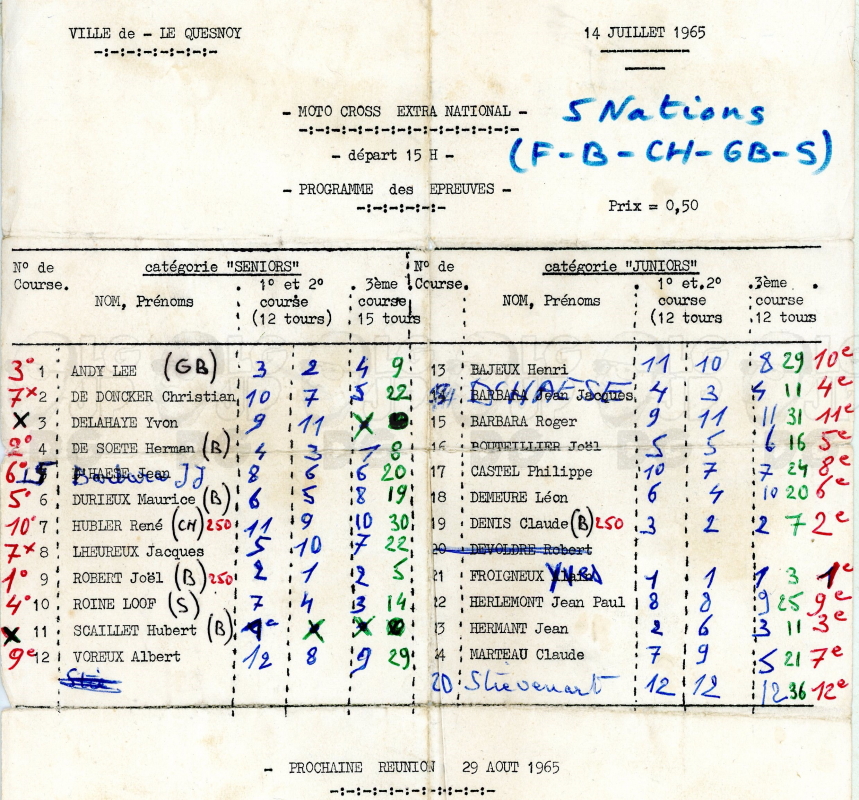 VILLE de - LE QUESNOY
14 JUILLET 1965
- MOTO CROSS EXTRA NATIONAL -
5 Nations
(F-B-CH-GB-S)
- départ 15 H -
- PROGRAMME des EPREUVES -
Prix = 0,50
N° de Course. catégorie "SENIORS" N° de Course. catégorie "JUNIORS"
NOM, Prénoms 1° et 2° course (12 tours) 3ème course 15 tours NOM, Prénoms 1° et 2° course (12 tours) 3ème course 12 tours
3° 1 ANDY LEE (GB) 3 2 4 9 13 BAJEUX Henri 11 10 8 29 10e
7x 2 DE DONCKER Christian 10 7 5 22 DCHAESE BARBARA Jean Jacques 4 3 4 11 4e
x 3 DELAHAYE Yvon 9 11 x 15 BARBARA Roger 9 11 11 31 11e
2° 4 DE SOETE Herman (B) 4 3 1 8 16 BOUTEILLIER Joël 5 5 6 16 5e
6° 15 Barbara JJ Jean 8 6 6 20 17 CASTEL Philippe 10 7 7 24 8e
5° 6 DURIEUX Maurice (B) 6 5 8 19 18 DEMEURE Léon 6 4 10 20 6e
10° 7 HUBLER René (CH) 250 11 9 10 30 19 DENIS Claude (B) 250 3 2 2 7 2e
7x 8 LHEUREUX Jacques 5 10 7 22 20 DEVOLDRE Robert
1° 9 ROBERT Joël (B) 250 2 1 2 5 21 FROIGNEUX Yves 1 1 1 3 1e
4° 10 ROINE LOOF (S) 7 4 3 14 22 HERLEMONT Jean Paul 8 8 9 25 9e
x 11 SCAILLET Hubert (B) x x 23 HERMANT Jean 2 6 3 11 3e
9e 12 VOREUX Albert 12 8 9 29 24 MARTEAU Claude 7 9 5 21 7e
20 Stievenart 12 12 12 36 12e
- PROCHAINE REUNION 29 AOUT 1965